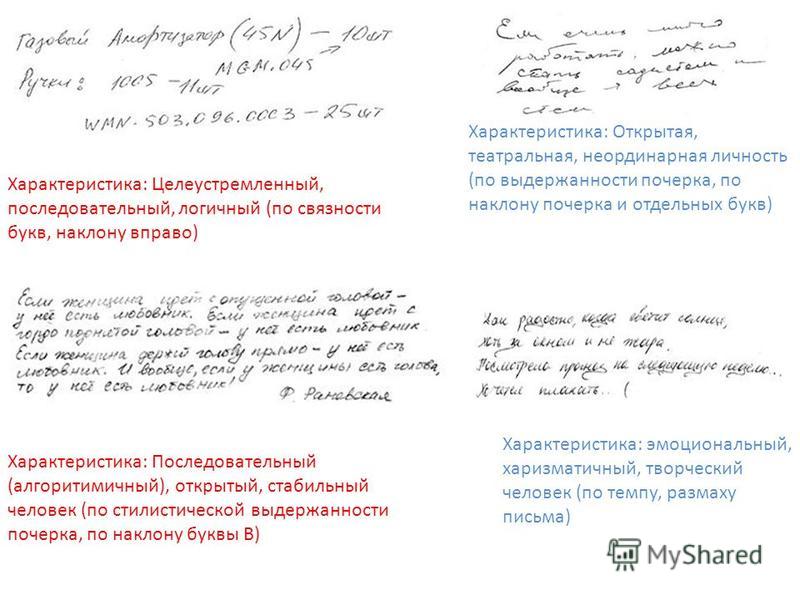 Газовый Амортизатор (45N) – 10шт
Ручки: 1005 – 11шт
MGM.045
WMN.503.096.00C3 – 25шт
Характеристика: Целеустремленный,
последовательный, логичный (по связности
букв, наклону вправо)
Если очень много
работать, можно
стать садистом и
вообще
Характеристика: Открытая,
театральная, неординарная личность
(по выдержанности почерка, по
наклону почерка и отдельных букв)
Если женщина идет с опущенной головой –
у неё есть любовник. Если женщина идет с
гордо поднятой головой – у неё есть любовник.
Если женщина держит голову прямо – у неё есть
любовник. И вообще, если у женщины есть голова,
то у неё есть любовник!
Ф. Раневская
Характеристика: Последовательный
(алгоритимичный), открытый, стабильный
человек (по стилистической выдержанности
почерка, по наклону буквы В)
Как радостно, когда светит солнце,
Хоть за окном и не жара.
Посмотрела прогноз на следующую неделю...
Хочется плакать.. (
Характеристика: эмоциональный,
харизматичный, творческий
человек (по темпу, размаху
письма)
MyShared